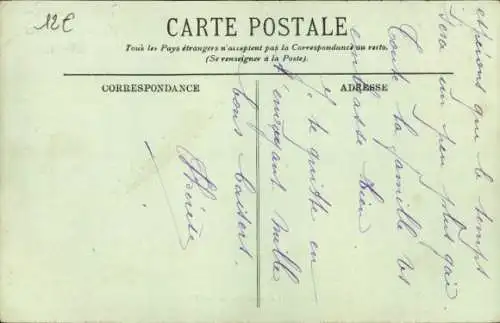 12€
CARTE POSTALE
Tous les Pays étrangers n'acceptent pas la Correspondance au recto.
(Se renseigner à la Poste).
CORRESPONDANCE
ADRESSE
espérons que le temps
sera un peu plus gai
Toute la famille vs
embrasse bien
et te quitte en
t'envoyant mille
bons baisers.